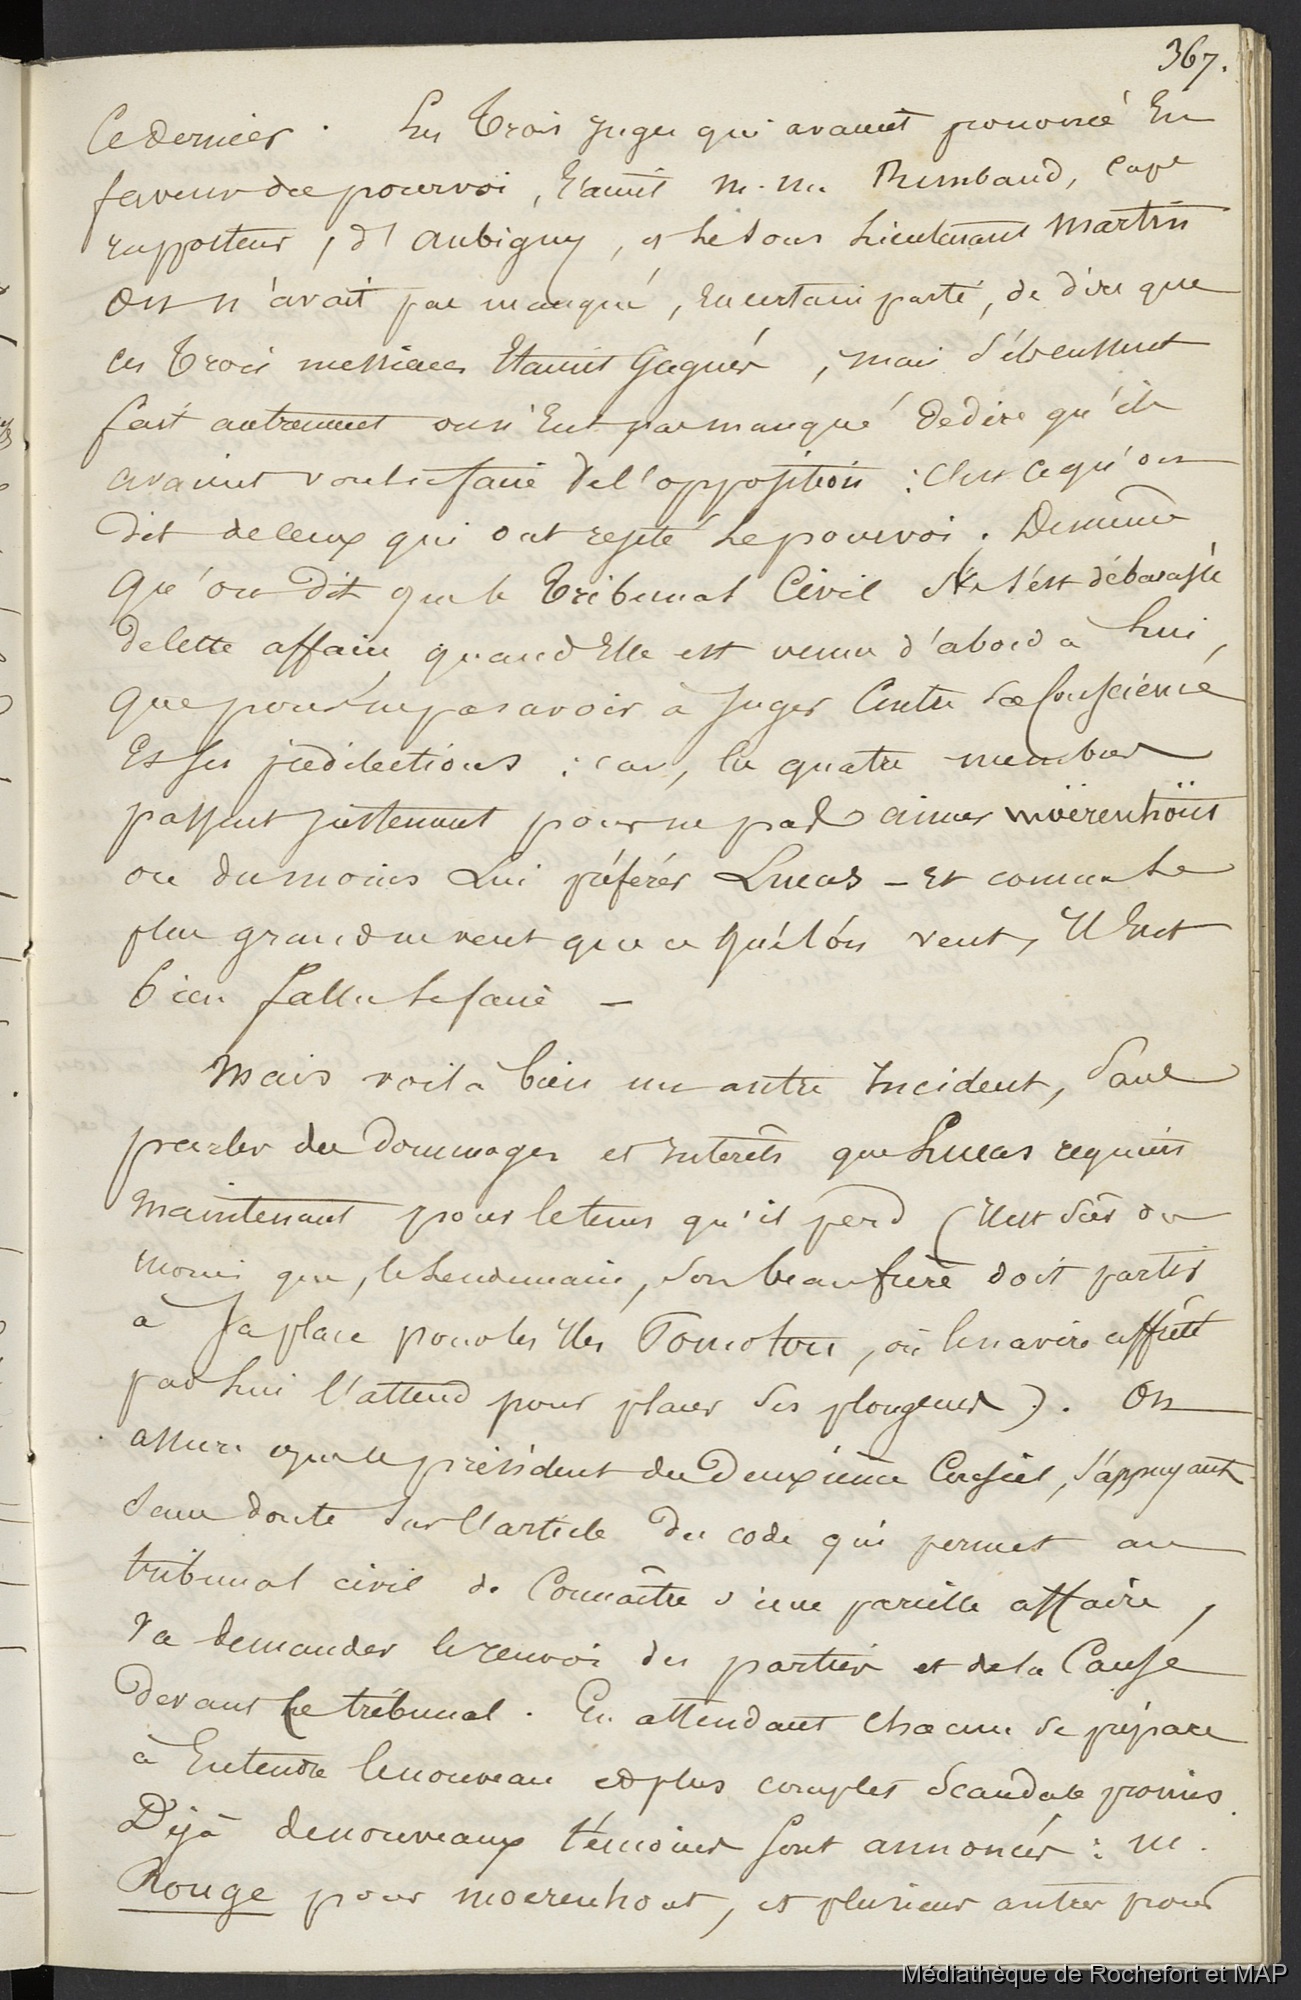 367.
Ce dernier. Les trois juges qui avaient prononcé En
faveur du pourvoi, étaient M. M. Rimbaud, Cape
rapporteur, d'Aubigny, et le sous Lieutenant Martin
On n'avait pas manqué, en certain parti, de dire que
ces trois messieurs étaient Gagnés, mais s'ils eussent
fait autrement on n'Eut pas manqué de dire qu'ils
avaient voulu faire de l'opposition : C'est ce qu'on
dit de ceux qui ont rejeté le pourvoi. De même
qu'on dit que le Tribunal Civil ne s'est débarassé
de cette affaire quand Elle est venue d'abord à lui,
que pour ne pas avoir à Juger Contre sa Conscience
Et ses prédilections : car, les quatre membres
passent justement pour ne pas aimer Möerenhoüt
ou du moins lui préférer Lucas - Et comme le
plus grand ne veut que ce qu'el'on veut, Il Eut
bien fallu le faire -
Mais voilà bien un autre Incident, Sans
parler des dommages et Interêts que Lucas requiert
maintenant pour le tems qu'il perd (Il est sûr du
moins que, le lendemain, son beau frère doit partir
à Sa place pour les Iles Pomotou, où le navire affrété
par lui l'attend pour placer ses plongeurs). On
assure que le président du Deuxième Conseil, s'appuyant
sans doute sur l'article du code qui permet au
tribunal civil de Connaître d'une pareille affaire,
va demander le renvoi des parties et de la Cause
devant le tribunal. En attendant chacun se prépare
à Entendre le nouveau et plus complet scandale promis.
Déjà de nouveaux témoins sont annoncés : M.
Rouge pour Moerenhout, et plusieurs autres pour
Médiathèque de Rochefort et MAP